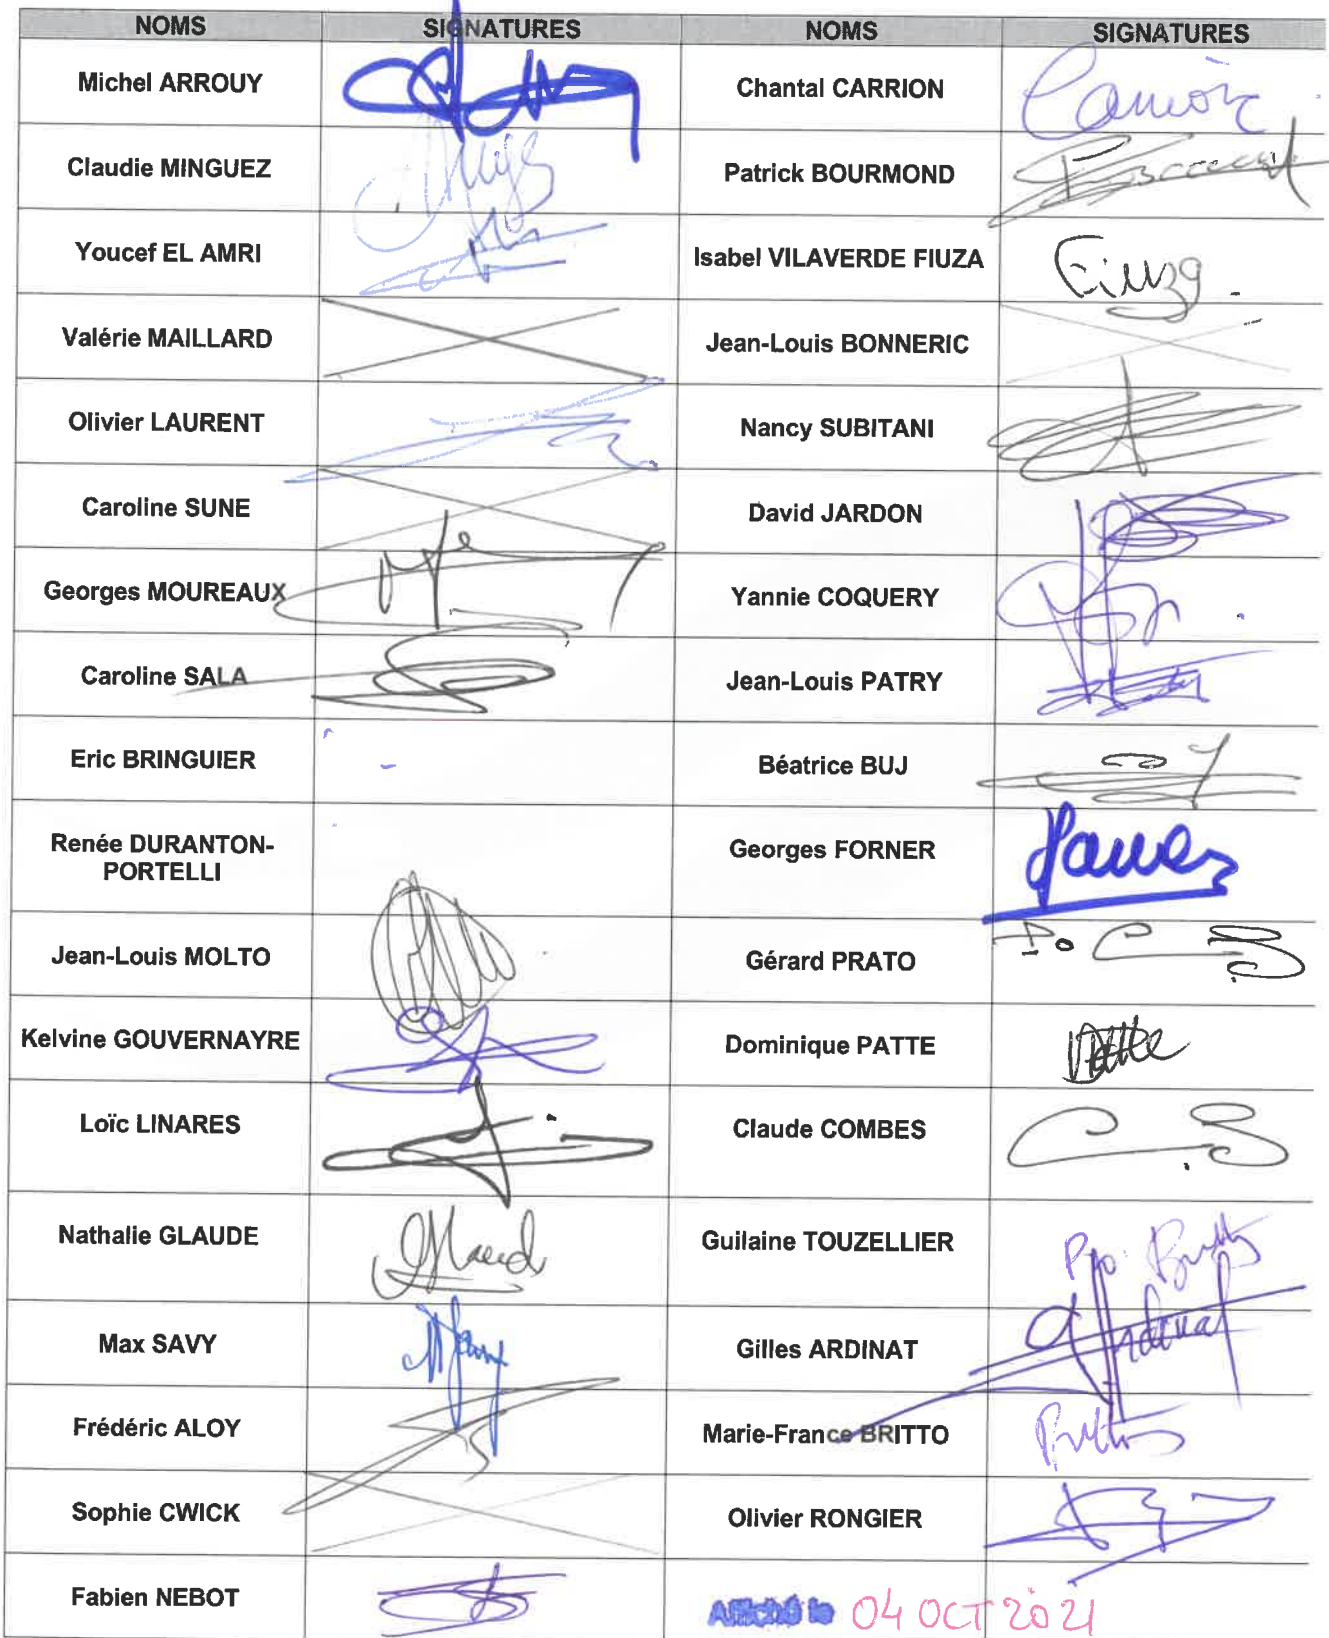 NOMS SIGNATURES NOMS SIGNATURES
Michel ARROUY Chantal CARRION
Claudie MINGUEZ Patrick BOURMOND
Youcef EL AMRI Isabel VILAVERDE FIUZA Fiuza
Valérie MAILLARD Jean-Louis BONNERIC
Olivier LAURENT Nancy SUBITANI
Caroline SUNE David JARDON
Georges MOUREAUX Yannie COQUERY
Caroline SALA Jean-Louis PATRY
Eric BRINGUIER Béatrice BUJ
Renée DURANTON-
PORTELLI Georges FORNER
Jean-Louis MOLTO Gérard PRATO
Kelvine GOUVERNAYRE Dominique PATTE Patte
Loïc LINARES Claude COMBES
Nathalie GLAUDE Guilaine TOUZELLIER
Max SAVY Gilles ARDINAT Ardinat
Frédéric ALOY Marie-France BRITTO
Sophie CWICK Olivier RONGIER
Fabien NEBOT Affiché le 04 OCT 2021